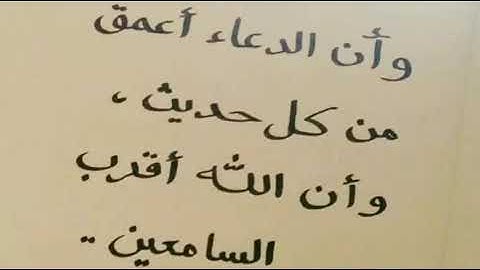 وأن الدعاء أعمق
من كل حديث ،
وأن الله أقرب
السامعين ..